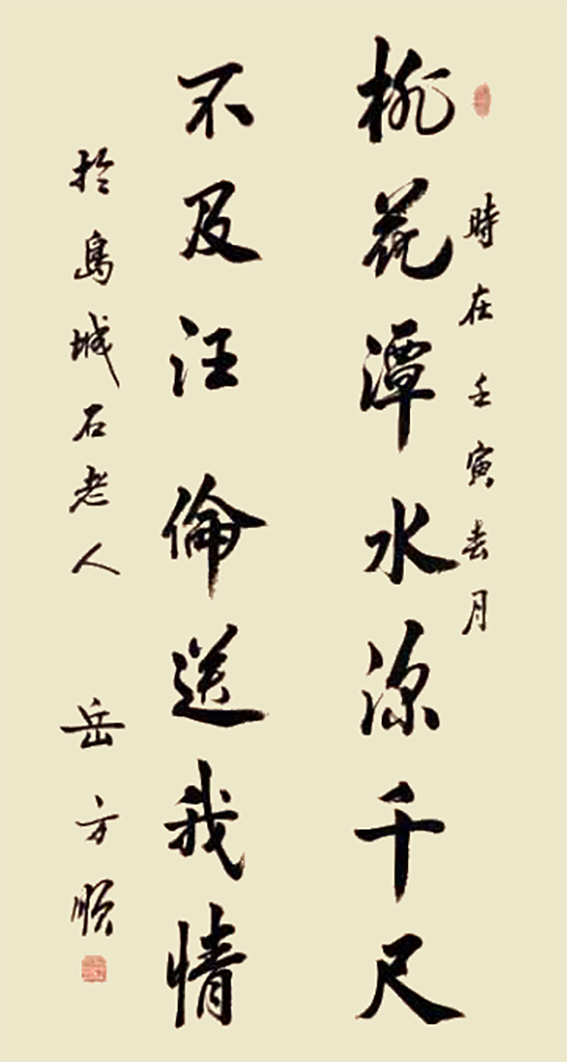 時在壬寅去月
桃花潭水深千尺
不及汪倫送我情
於島城石老人 岳方順